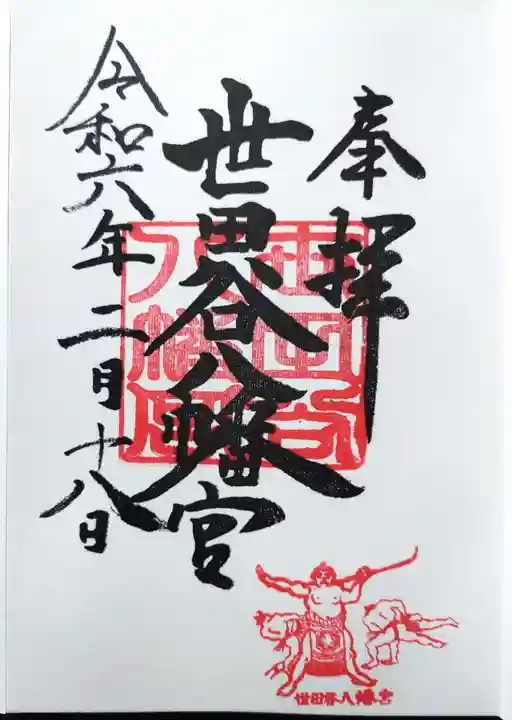 奉拝
世田谷八幡宮
令和六年二月十八日
世田谷八幡宮
世田谷八幡宮